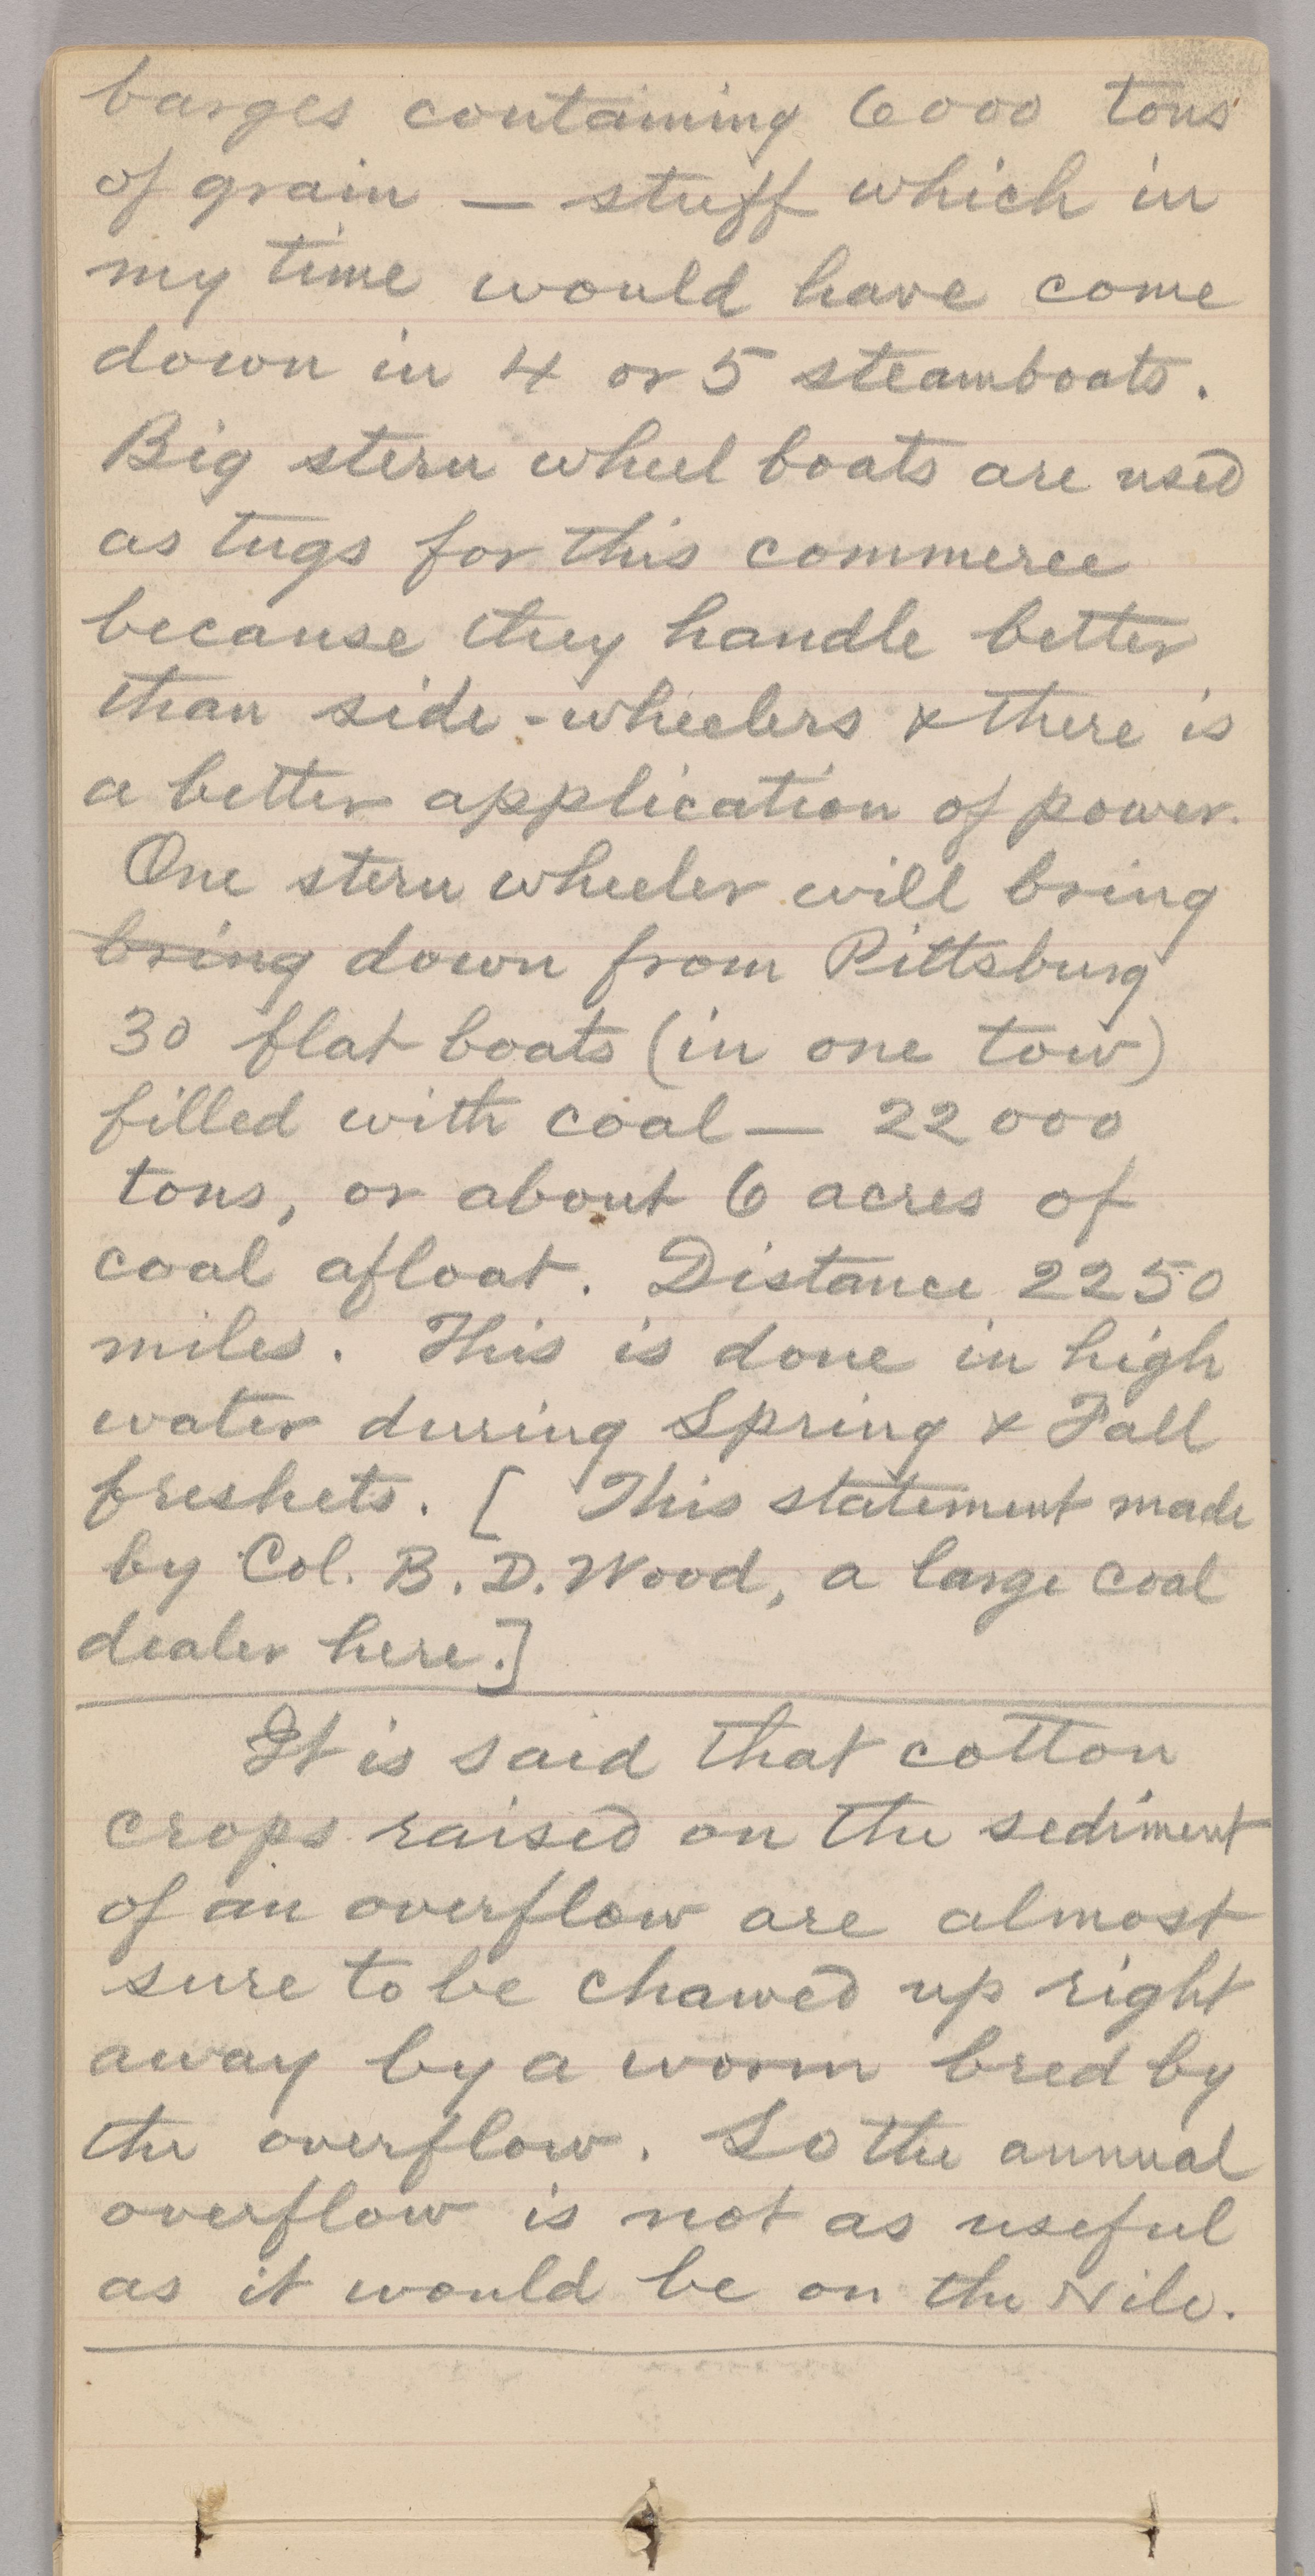 barges containing 6000 tons
of grain — stuff which in
my time would have come
down in 4 or 5 steamboats.
Big stern wheel boats are used
as tugs for this commerce
because they handle better
than side-wheelers & there is
a better application of power.
One stern wheeler will bring
bring down from Pittsburg
30 flat boats (in one tow)
filled with coal — 22000
tons, or about 6 acres of
coal afloat. Distance 2250
miles. This is done in high
water during Spring & Fall
freshets. [ This statement made
by Col. B. D. Wood, a large coal
dealer here.]
It is said that cotton
crops raised on the sediment
of an overflow are almost
sure to be chawed up right
away by a worm bred by
the overflow. So the annual
overflow is not as useful
as it would be on the Nile.